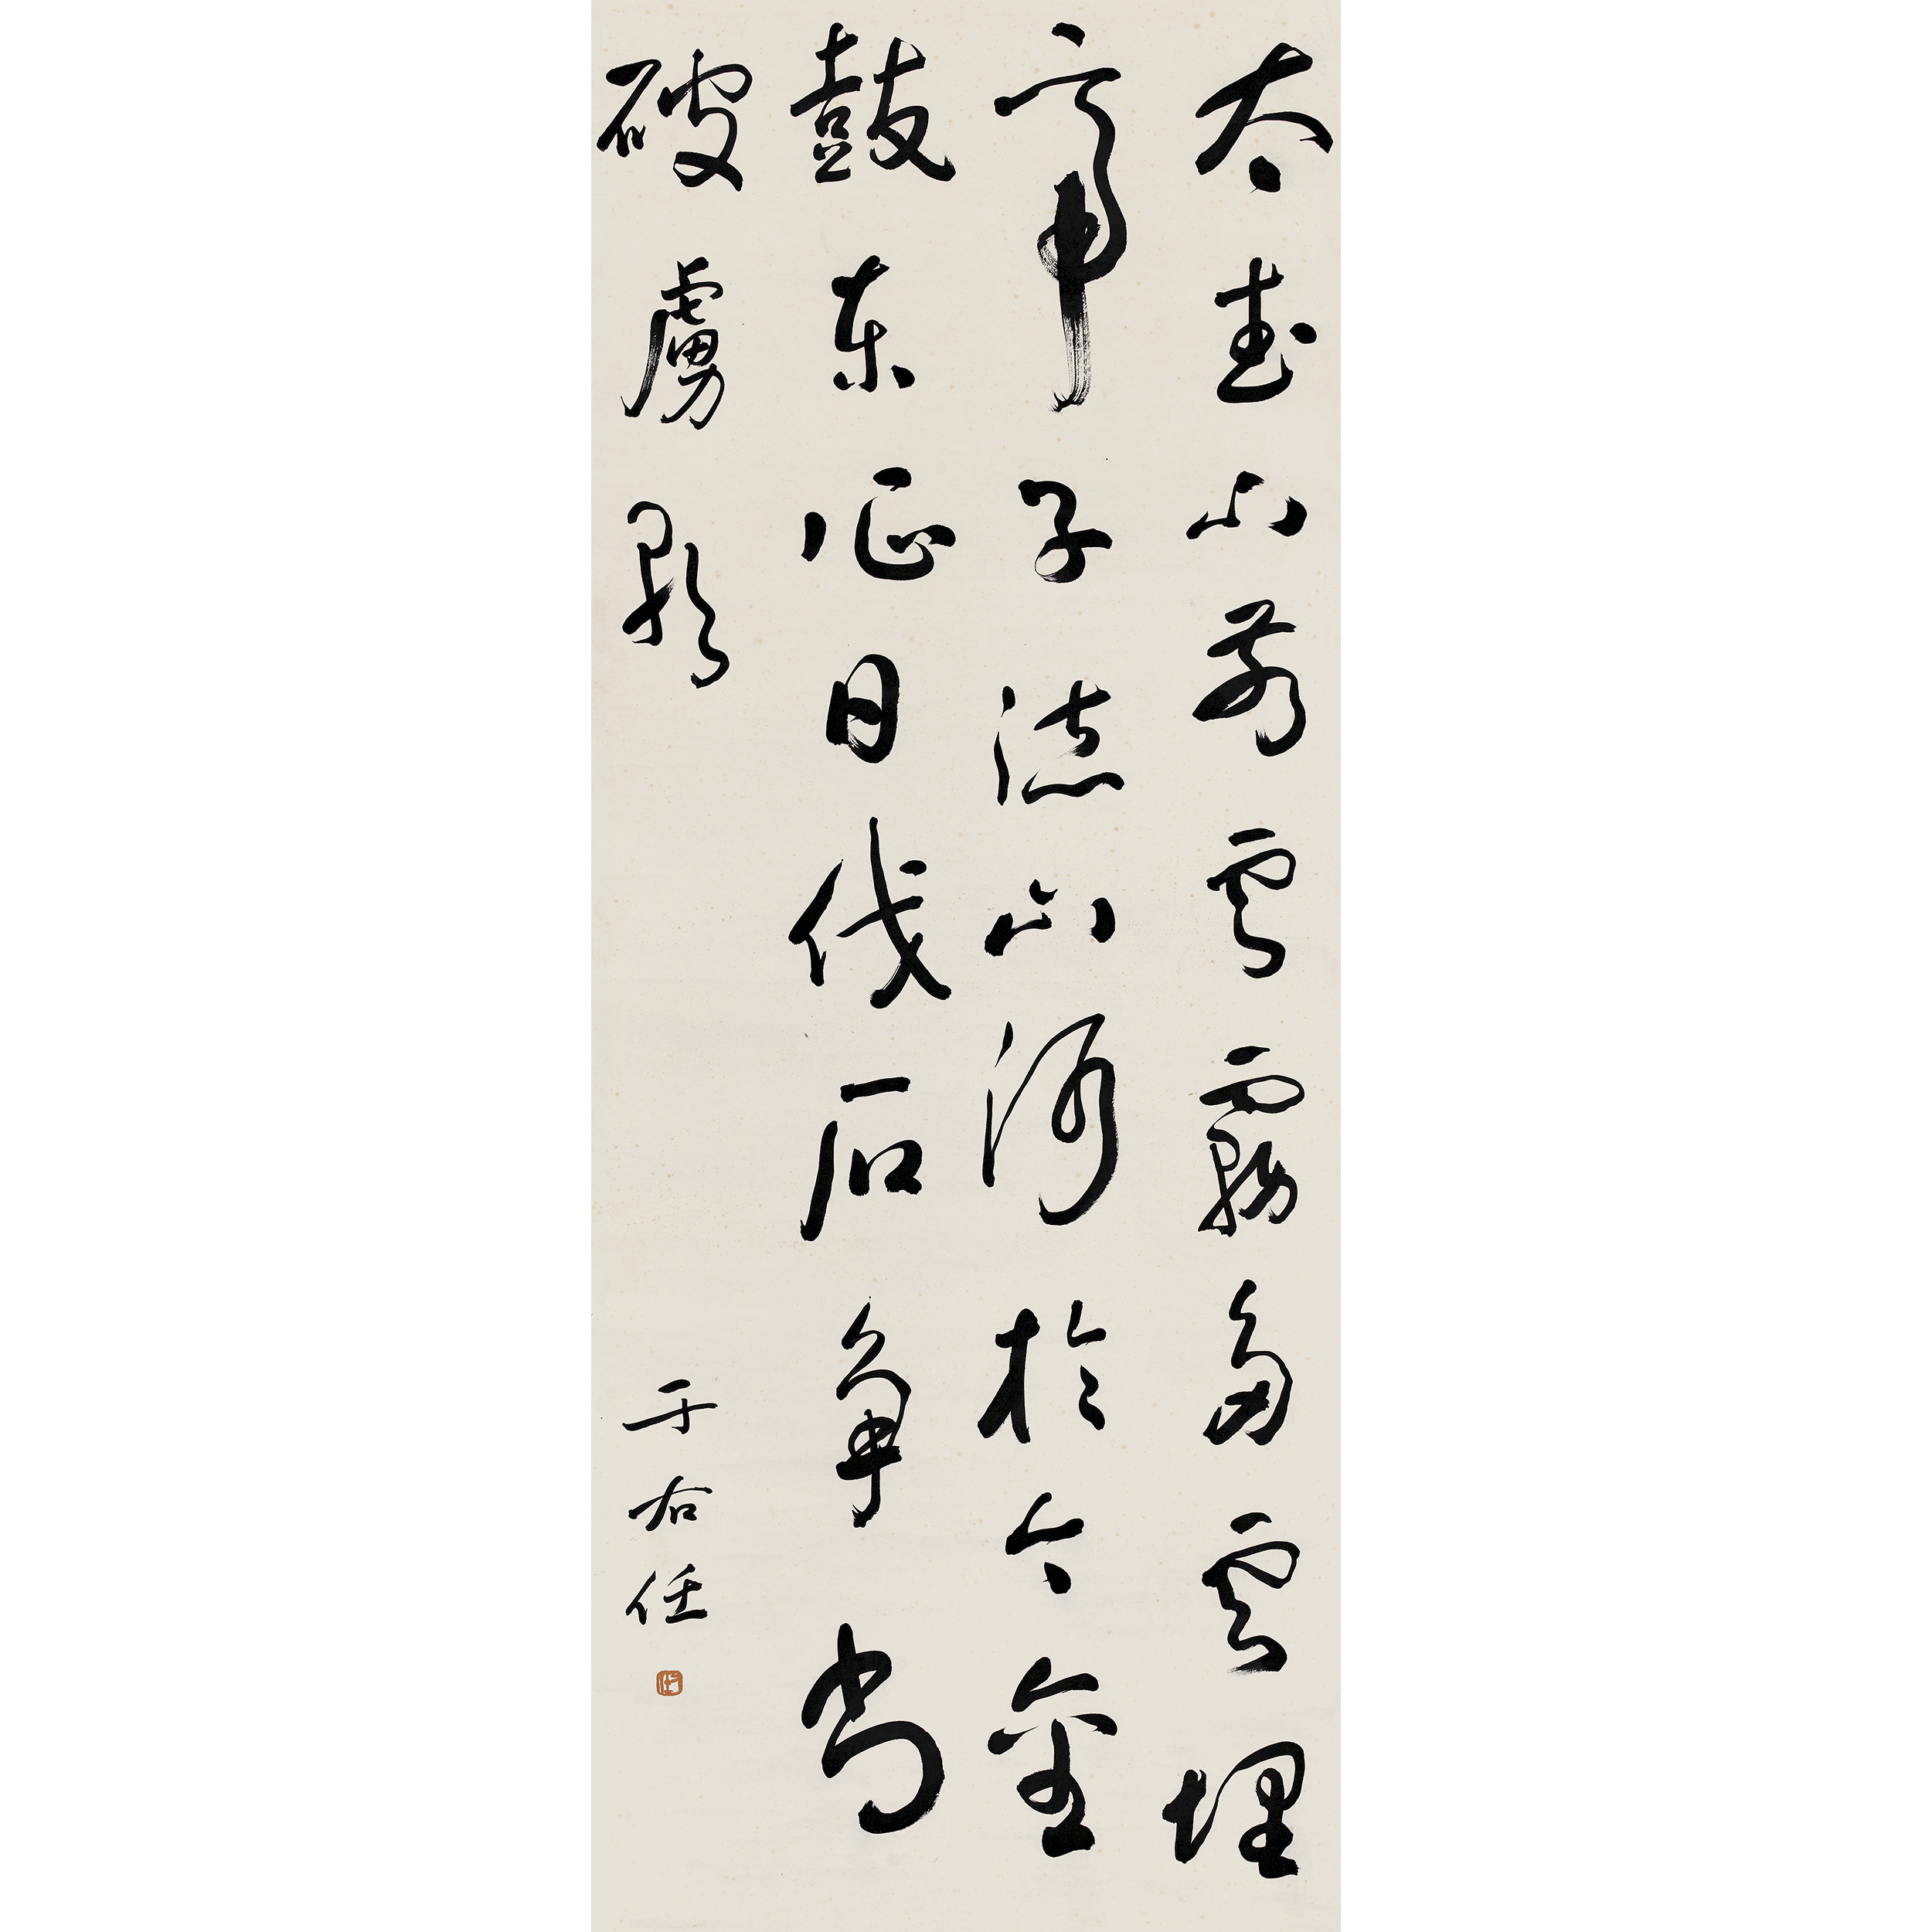 太武山前雲霧多雲埋
子誌山河於今金
鼓東征日伐石爭為
破虜歌
于右任